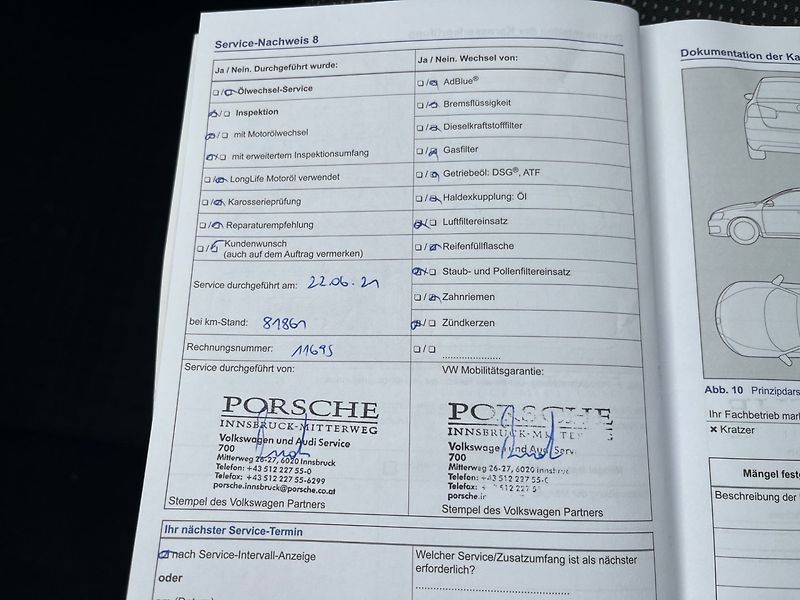 Service-Nachweis 8
Ja / Nein. Durchgeführt wurde:
Ölwechsel-Service
Inspektion
mit Motorölwechsel
mit erweitertem Inspektionsumfang
LongLife Motoröl verwendet
Karosserieprüfung
Reparaturempfehlung
Kundenwunsch
(auch auf dem Auftrag vermerken)
Service durchgeführt am: 22.06.21
bei km-Stand: 81861
Rechnungsnummer: 11695
Ja / Nein. Wechsel von:
AdBlue®
Bremsflüssigkeit
Dieselkraftstofffilter
Gasfilter
Getriebeöl: DSG®, ATF
Haldexkupplung: Öl
Luftfiltereinsatz
Reifenfüllflasche
Staub- und Pollenfiltereinsatz
Zahnriemen
Zündkerzen
Service durchgeführt von:
PORSCHE
INNSBRUCK-MITTERWEG
Volkswagen und Audi Service
700
Mitterweg 26-27, 6020 Innsbruck
Telefon: +43 512 227 55-0
Telefax: +43 512 227 55-6299
porsche.innsbruck@porsche.co.at
Stempel des Volkswagen Partners
VW Mobilitätsgarantie:
PORSCHE
INNSBRUCK-M
Volkswagen und Audi Serv
700
Mitterweg 26-27, 6020 Innsbruc
Telefon: +43 512 227 55-0
Telefax: 512 227 5
porsche.in
Stempel des Volkswagen Partners
Ihr nächster Service-Termin
nach Service-Intervall-Anzeige
oder
Welcher Service/Zusatzumfang ist als nächster
erforderlich?
Dokumentation der Ka
Abb. 10 Prinzipdars
Ihr Fachbetrieb mark
× Kratzer
Mängel fest
Beschreibung der